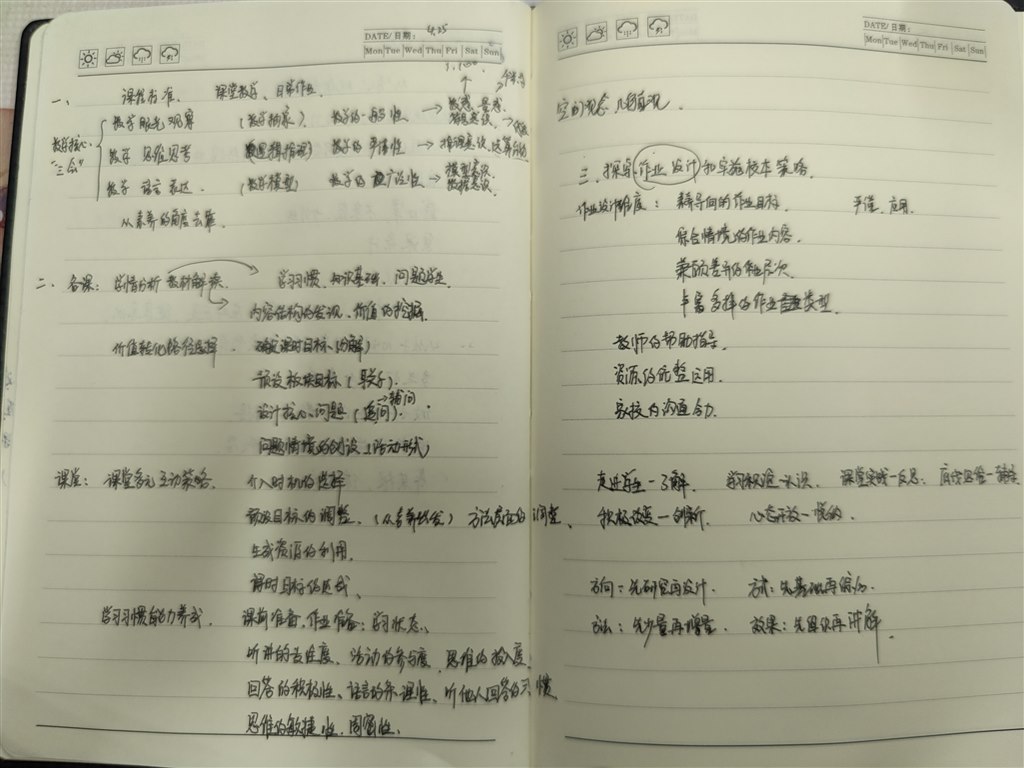 DATE/日期: 4.25
Mon Tue Wed Thu Fri Sat Sun
一、 课程标准、 课堂教学、日常作业
数学核心"三会"
数学眼光观察 (数学抽象) 数学的一般性 → 数感、量感、符号意识、
数学思维思考 (逻辑推理) 数学的严谨性 → 推理意识、运算能力
数学语言表达. (数学模型) 数学的应用广泛性 → 模型意识、数据意识、
从素养的角度去靠.
二、备课: 学情分析 教材解读. 学习习惯、知识基础、问题学生.
内容结构的发现、价值的挖掘.
价值转化路径选择. 确定课时目标(分解)
预设板块目标(关联).
设计核心问题(追问) → 辅问
问题情境的创设(活动形式)
课堂: 课堂多元互动策略. 介入时机的选择
预设目标的调整. (从素养出发) 方法负面的调整、
生成资源的利用.
课时目标的达成、
学习习惯能力养成. 课前准备、作业准备、学习状态、
听讲的专注度、活动的参与度、思维的投入度.
回答的积极性、语言的条理性、听他人回答的习惯
思维的敏捷性、周密性、
DATE/日期:
Mon Tue Wed Thu Fri Sat Sun
空间观念、几何直观、
三. 探究作业设计和实施校本策略.
作业设计维度: 素养导向的作业目标. 严谨、应用.
综合情境的作业内容.
兼顾差异的作业层次.
丰富多样的作业类型.
教师的帮助指导.
资源的完整运用.
家校内沟通合力.
走进学生—了解. 学习权途—认识、 课堂实践—反思、
积极改变—创新. 心态开放—悦纳.
方向:先研究再设计. 方式:先基础再综合.
方法:先少量再增量. 效果:先固化再讲解.